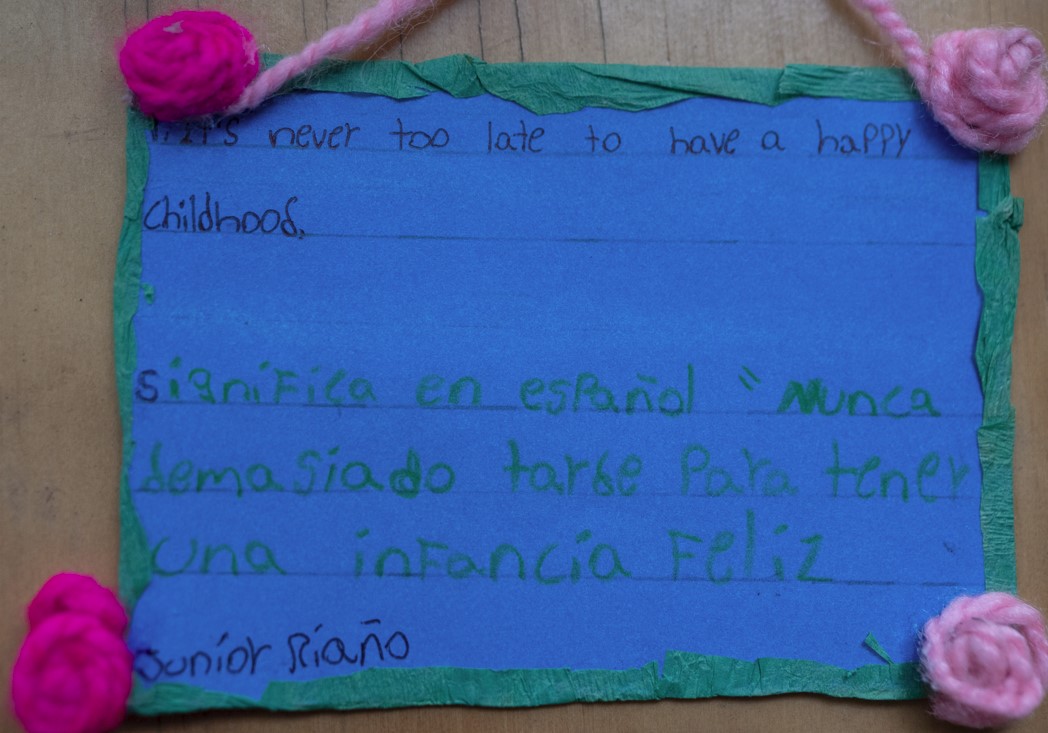 It's never too late to have a happy
childhood.
significa en español " Nunca
demasiado tarde para tener
una infancia Feliz
Junior Riaño